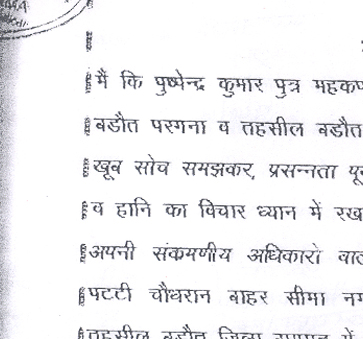 मै कि पुष्पेन्द्र कुमार पुत्र महकप
बडौत परगना व तहसील बडौत
खूब सोच समझकर, प्रसन्नता पू
व हानि का विचार ध्यान में रख
अपनी संकमणीय अधिकारो वाल
पटटी चौधरान बाहर सीमा नग
तहसील बडौत जिला बागपत में